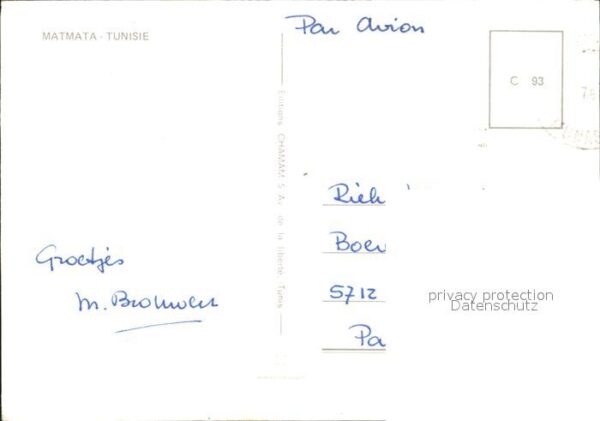 MATMATA - TUNISIE
Par Avion
C 93
Editions CHAMAM 5 Av. de la liberté - Tunis
Groetjes
M. Brouwers
Riek
Boer
5712
Pa
privacy protection
Datenschutz